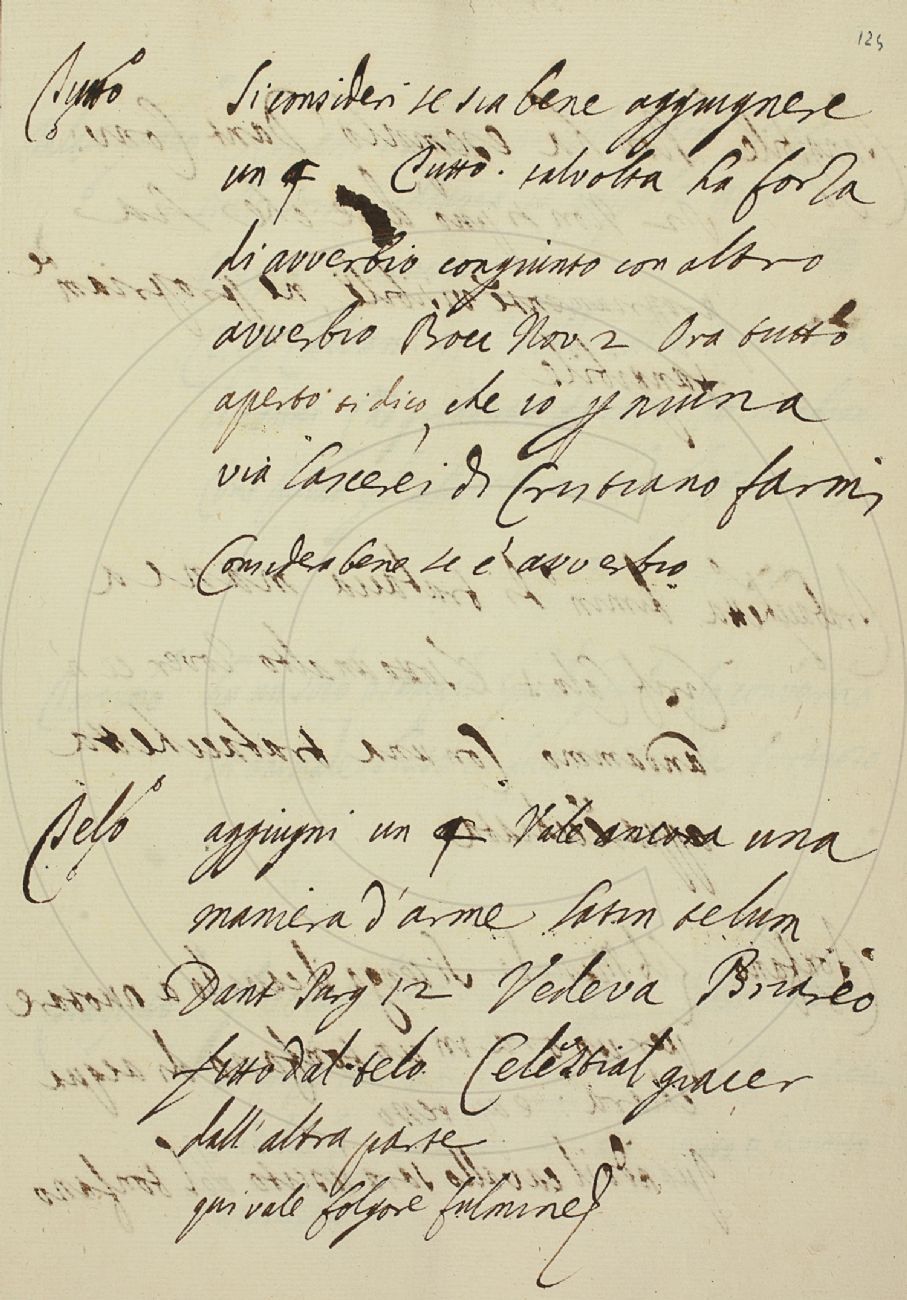 125
Tutto Si consideri se sia bene aggiugnere
un ¶ Tutto. talvolta ha forza
di avverbio congiunto con altro
avverbio Bocc Nov 2 Ora tutto
aperto ti dico, che io p niuna
via lascerei di Cristiano farmi
Considera bene se è avverbio
Telo aggiugni un ¶ Vale ancora una
maniera d'arme latin telum
Dant Purg 12 Vedeva Briareo
fitto dal telo Celestial giacer
dall'altra parte
qui vale folgore fulmine